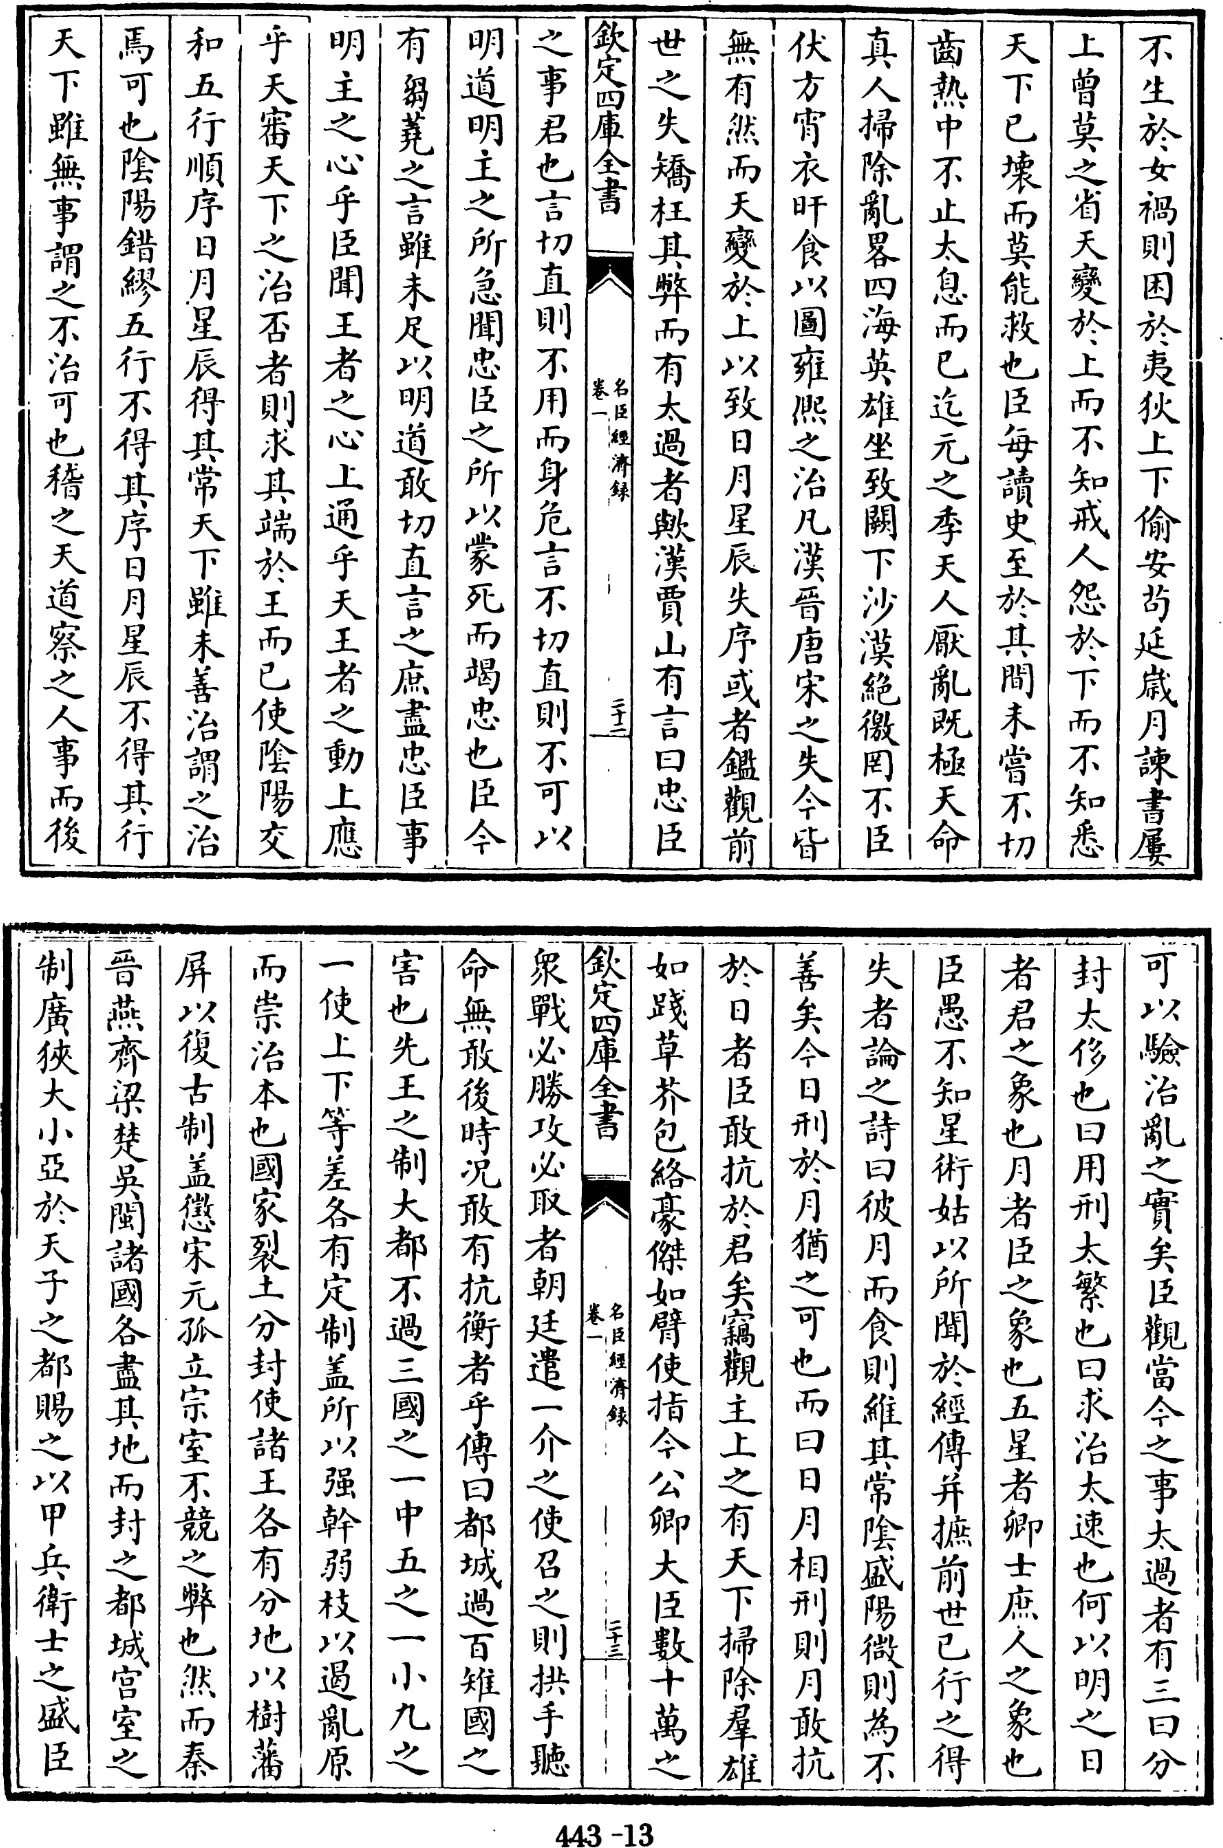 不生於女禍則困於夷狄上下偷安苟延歲月諫書屢
上曾莫之省天變於上而不知戒人怨於下而不知悉
天下已壞而莫能救也臣每讀史至於其間未嘗不切
齒熱中不止太息而已迄元之季天人厭亂既極天命
真人掃除亂畧四海英雄坐致闕下沙漠絕徼罔不臣
伏方宵衣旰食以圖雍熙之治凡漢晉唐宋之失今皆
無有然而天變於上以致日月星辰失序或者鑑觀前
世之失矯枉其弊而有太過者歟漢賈山有言曰忠臣
欽定四庫全書
名臣經濟録
卷一
二十二
之事君也言切直則不用而身危言不切直則不可以
明道明主之所急聞忠臣之所以蒙死而竭忠也臣今
有芻蕘之言雖未足以明道敢切直言之庶盡忠臣事
明主之心乎臣聞王者之心上通乎天王者之動上應
乎天審天下之治否者則求其端於王而已使陰陽交
和五行順序日月星辰得其常天下雖未善治謂之治
焉可也陰陽錯繆五行不得其序日月星辰不得其行
天下雖無事謂之不治可也稽之天道察之人事而後
可以驗治亂之實矣臣觀當今之事太過者有三曰分
封太侈也曰用刑太繁也曰求治太速也何以明之日
者君之象也月者臣之象也五星者卿士庶人之象也
臣愚不知星術姑以所聞於經傳并摭前世已行之得
失者論之詩曰彼月而食則維其常陰盛陽微則為不
善矣今日刑於月猶之可也而曰日月相刑則月敢抗
於日者臣敢抗於君矣竊觀主上之有天下掃除羣雄
如踐草芥包絡豪傑如臂使指今公卿大臣數十萬之
欽定四庫全書
名臣經濟録
卷一
二十三
衆戰必勝攻必取者朝廷遣一介之使召之則拱手聽
命無敢後時况敢有抗衡者乎傳曰都城過百雉國之
害也先王之制大都不過三國之一中五之一小九之
一使上下等差各有定制盖所以强幹弱枝以遏亂原
而崇治本也國家裂土分封使諸王各有分地以樹藩
屏以復古制盖懲宋元孤立宗室不競之弊也然而秦
晉燕齊梁楚吳閩諸國各盡其地而封之都城宮室之
制廣狹大小亞於天子之都賜之以甲兵衛士之盛臣
443-13